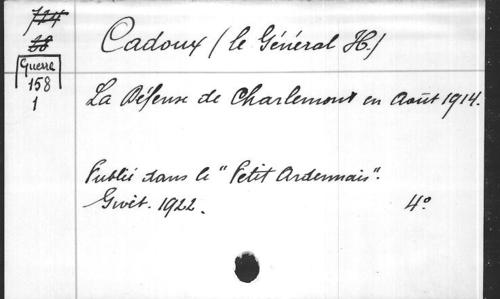 724
28
Guerre
158
1
Cadoux (le Général H.)
La Défense de Charlemont en Août 1914.
Publié dans le "Petit Ardennais".
Givet. 1922.
4°